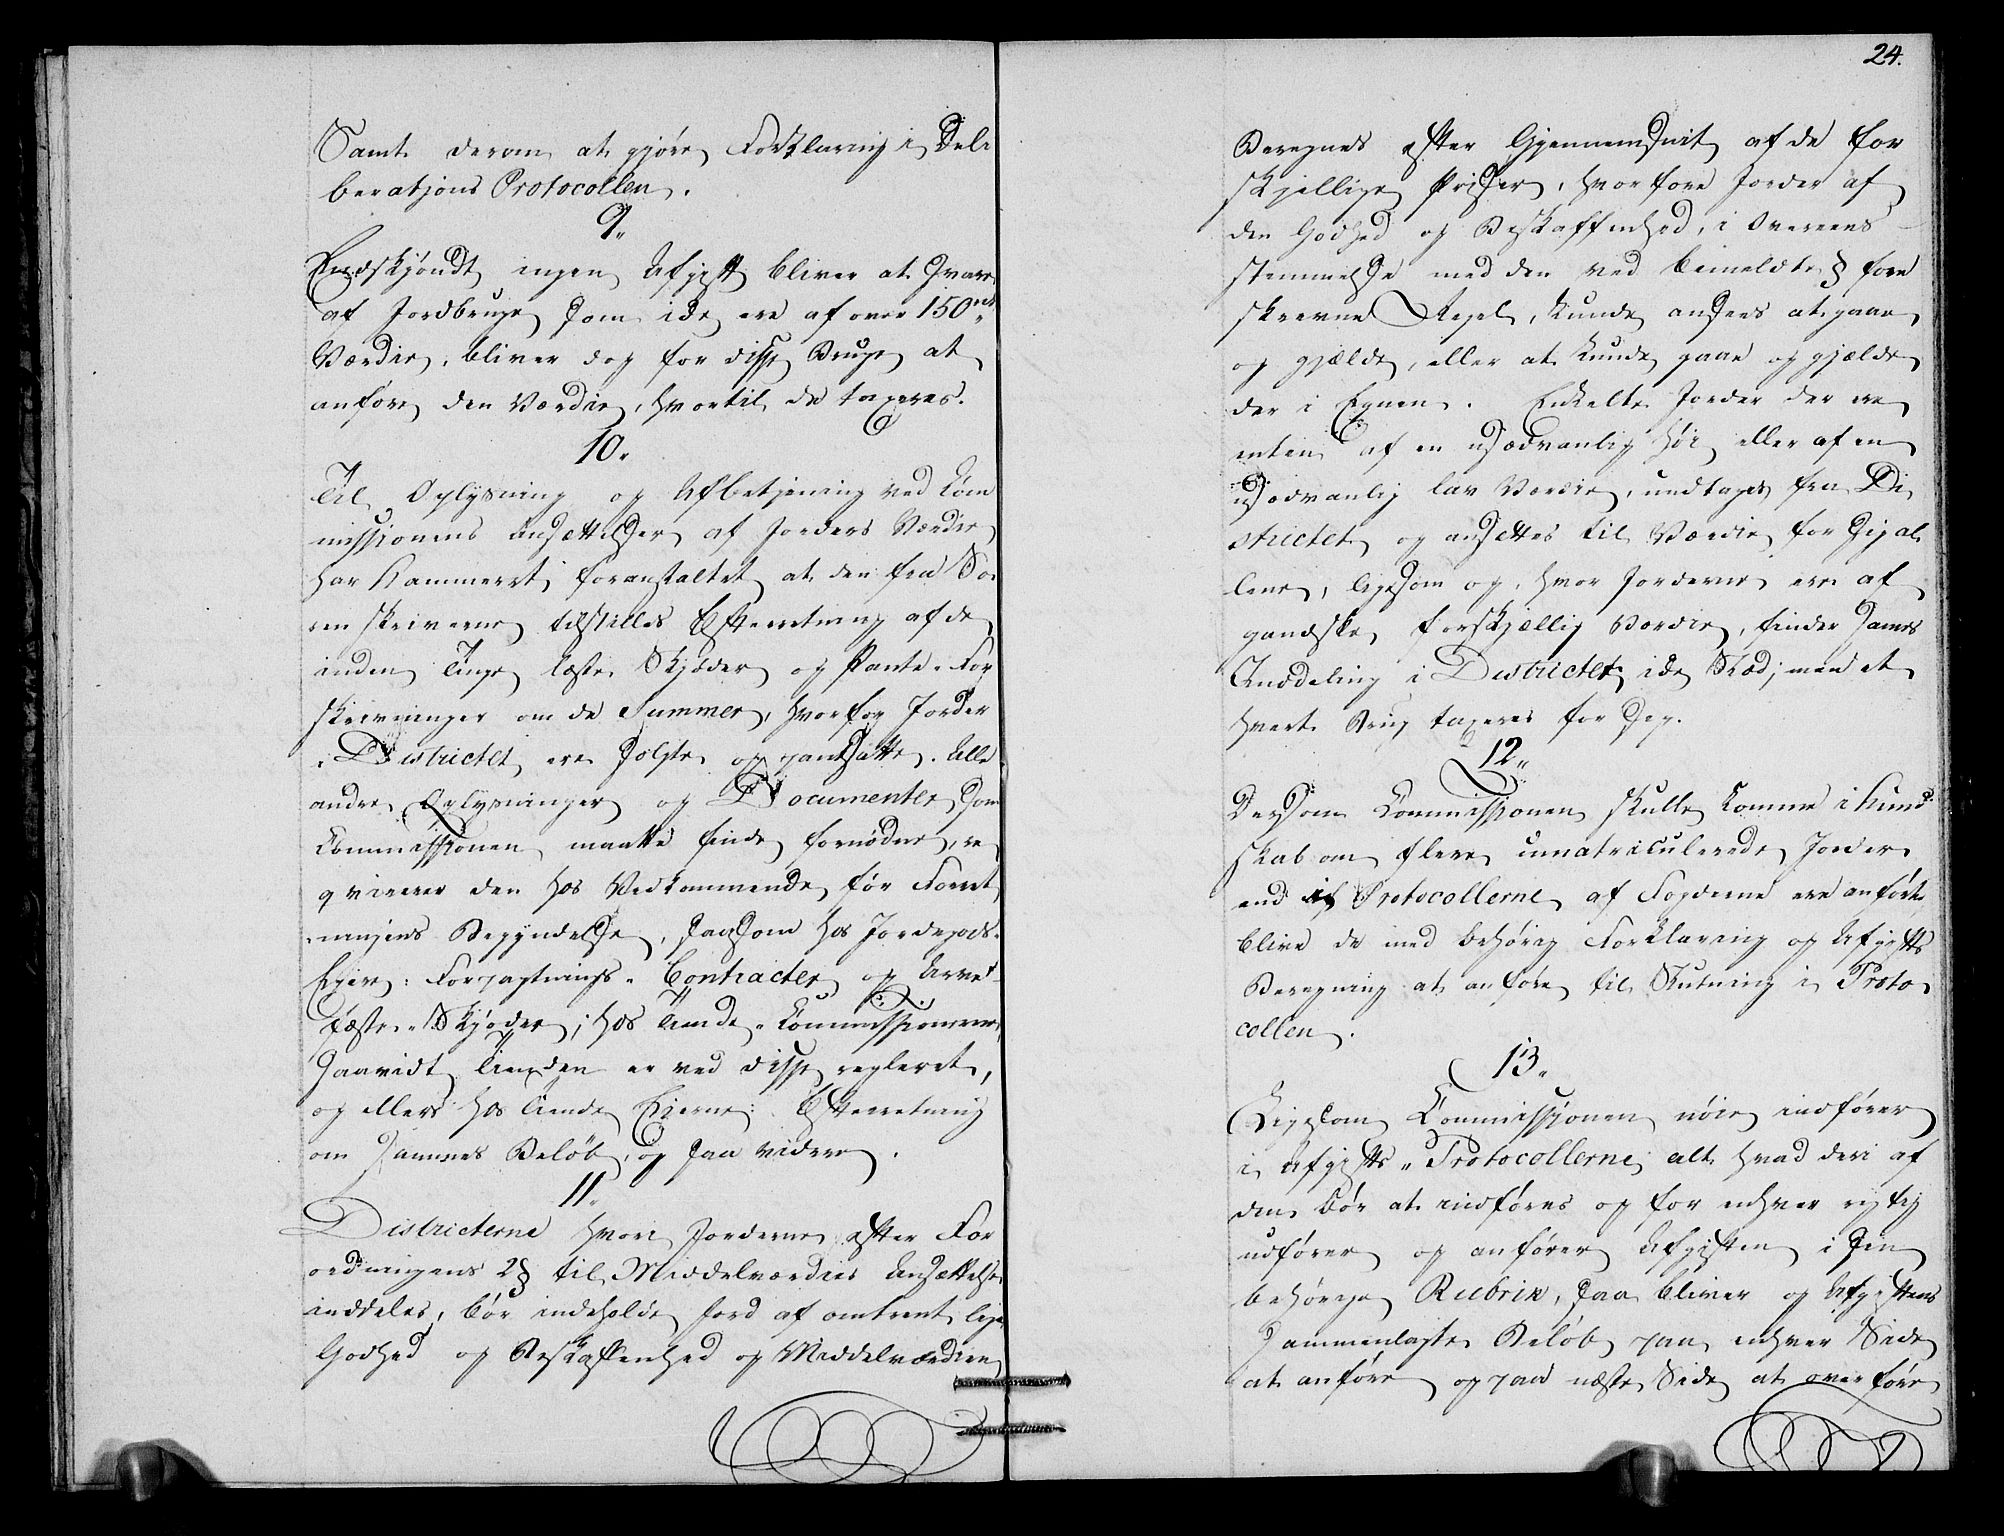 Samt derom at gjøre Forklaring i Deli
berations Protocollen.
9.
Endskjøndt ingen Afgift bliver at svare
af Jordbruge som ide ere af over 150 rd
Værdie, bliver dog for disse Bruge at
anføre den Værdie, hvortil de taxeres.
10.
Til Oplysning og Afbetjening ved Com
missionens Ansættelser af Jorders Værdie
har Kammeret foranstaltet at den fra So
renskriverne tilstilles Efterretning af de
inden Tinge læste Skjøder og Pante-For
skrivninger om de Summer, hvorfor Jorder
i Districtet ere solgte og pantsatte. Alle
andre Oplysninger og Documenter som
Commissionen maatte finde fornødne, re
qvirerer den hos Vedkommende før Forret
ningens Begyndelse, saasom hos Jordegods-
Eiere: Forpagtnings-Contracter og Arve-
fæste-Skjøder; hos Tiende-Commissionerne,
saavidt Tienden er ved disse regleret,
og ellers hos Tiende Eierne: Efterretning
om sammes Beløb, og saa videre.
11.
Districterne hvori Jorderne efter For
ordningens 2 § til Middelværdies Ansættelse
inddeles, bør indeholde Jord af omtrent lige
Godhed og Beskaffenhed og Middelværdien
24.
Beregnes efter Gjennemsnit af de for
skjellige Priser, hvorfore Jorder af
den Godhed og Beskaffenhed, i Overeens-
stemmelse med den ved bemeldte § fore
skrevne Regel, kunde ansees at gaae
og gjælde, eller at kunde gaae og gjælde
der i Egnen. Enkelte Jorder der ere
enten af en usædvanlig høi eller af en
usædvanlig lav Værdie, undtages fra Di
strictet og ansettes til Værdie for sig al
lene, ligesom og, hvor Jorderne ere af
gandske forskjællig Værdie, finder sammes
Inddeling i Districter ide Sted; men et
hvert Brug taxeres for sig.
12.
Dersom Commissionen skulle komme i Kund
skab om flere umatriculerede Jorder
end i Protocollerne af Fogderne ere anførte,
blive de med behørig Forklaring og Afgifts
Beregning at anføre til Slutning i Proto
collen.
13.
Ligesom Commissionen nøie indfører
i Afgifts-Protocollerne alt hvad deri af
den bør at indføres og for enhver rigtig
udfører og anfører Afgiften i sin
behørige Rubrik, saa bliver og Afgiftens
sammenlagte Beløb paa enhver Side
at anføre og paa næste Side at overføre